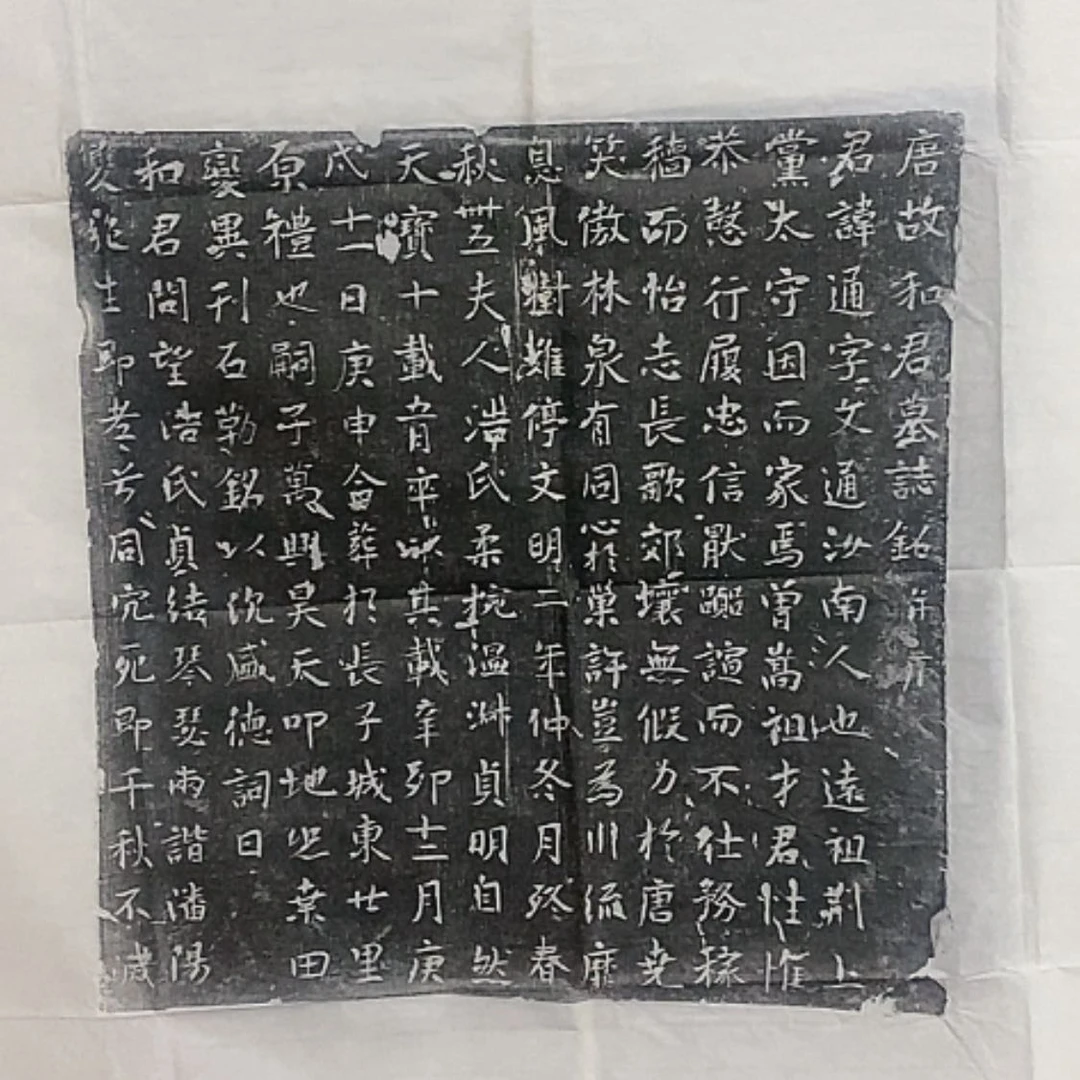 唐故和君墓誌銘并序
君諱通字文通汝南人也遠祖荊上
黨太守因而家焉曾嵩祖才君性惟
恭慤行履忠信厭躁諠而不仕務稼
穡而怡志長歌郊壤無假力於唐堯
笑傲林泉有同心於巢許豈為川流靡
息風樹難停文明二年仲冬月終春
秋卌五夫人浩氏柔婉溫淋貞明自然
天寶十載月卒以其載辛卯十二月庚
戌十一日庚申合葬於長子城東廿里
原禮也嗣子萬興昊天叩地恐桒田
變異刊石勒銘以旌盛德詞曰
和君問望浩氏貞綾琴瑟兩諧潘陽
生即孝兮同穴死即千秋不滅